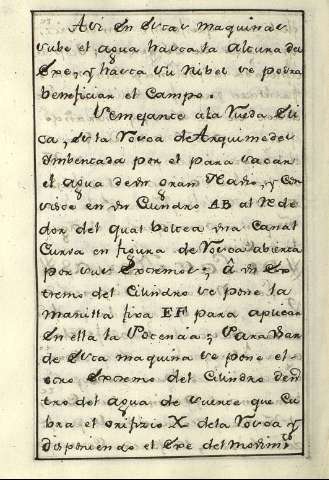 Asi en estas maquinas
sube el agua hasta la altura del
Exe, y hasta su nibel se podra
beneficiar el Campo.
Semejante ala Rueda Su
ca, es la Rosca de Arquimedes
imbentada por el para sacar
el agua de un gran Navio, y Con
siste en un Cilindro AB al Rede
dor del qual boltea una Canal
Curva en figura de Rosca abierta
por sus Extremos; â un Ex
tremo del Cilindro se pone la
manilla fixa EF para aplicar
en ella la Potencia; Para usar
de esta maquina se pone el
otro Extremo del Cilindro den
tro del agua de suerte que Cu
bra el orifizio X dela Rosca y
disponiendo el Exe del movim.to